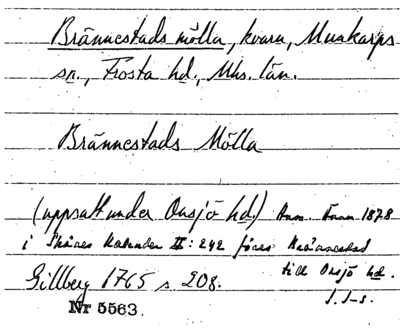 Brännestads mölla, kvarn, Munkarps
sn., Frosta hd., Mhs. län.
Brännestads Mölla
(uppsatt under Onsjö hd.) Anm. Ännu 1878
i Skånes Kalender II: 242 föres Brännestad
till Onsjö hd.
Gillberg 1765 s. 208.
Nr 5563.